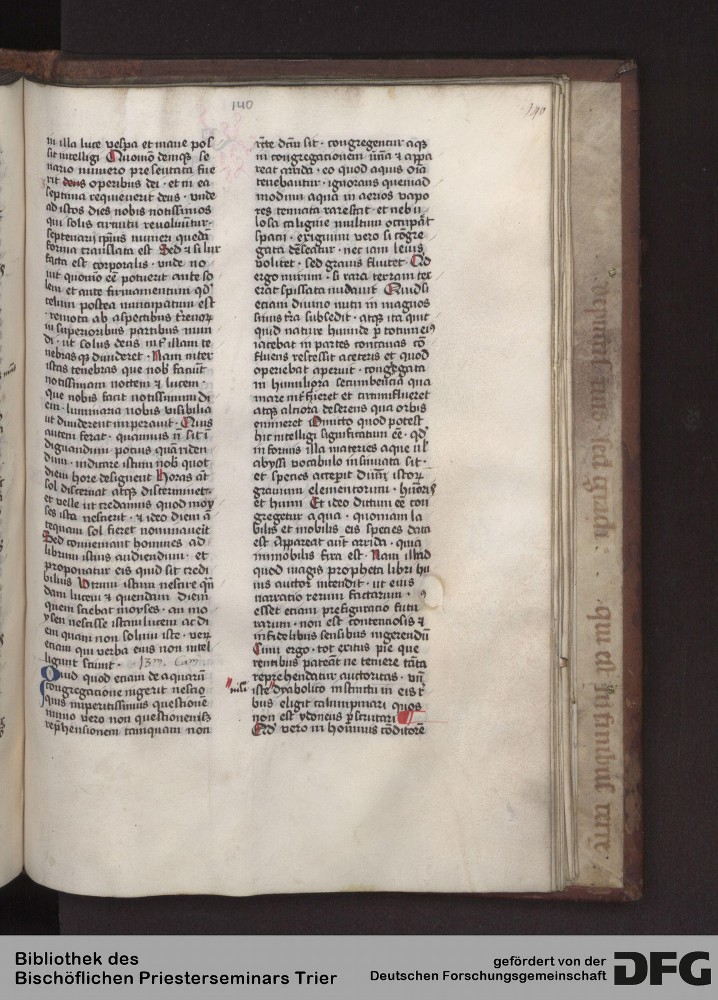 140
140
in illa luce vespa et mane pos
sit intelligi Quomō demqȝ se
nario numero presentata fue
rit deus operibus dei · et in ea
septima requieuerit deus · vnde
ad istos dies nobis notissimos
qui solis circuitu reuoluūtur ·
septenarij ipsius numeri quedā
forma translata est Sed ⁊ si lux
facta est corporalis · vnde no
uit quomō eē potuerit ante so
lem et ante firmamentum qd'
celum postea nuncupatum est
remota ab aspectibus
in superioribus partibus mun
di · ut solus deus int' illam te
nebrasqȝ diuideret · Nam inter
istas tenebras que nob' faciūt
notissimam noctem ⁊ lucem ·
que nobis facit notissimum di
em · luminaria nobis visibilia
ut diuiderent imperauit · Cuius
autem ferat · quamuis
diguandum potius quā riden
dum · iudicare istum nob' quot
diem hore deligiuent Horas āt
sol discernat atqȝ discriminet ·
et velle ut credamus quod moy
ses ista nescierit · ⁊ ideo diem ā
tequam sol fieret nominauerit
Sed conueniant homines ad
librum istius audiendum · et
proponatur eis quid sit credi
bilius Vtrum istum nescire q̄n
dam lucem ⁊ quendam diem
quem sciebat moyses · an mo
ysen nescisse istam lucem ac di
em quam non solum iste · veȝ
etiam qui verba eius non intel
ligunt sciunt ·
Quid quod etiam de aquarū
congregatione ingerit nescio
quis imperitissimus questionē
immo vero non questionem sȝ
rep̄hensionem tamquam non
dc̄m sit · congregentur aqȝ
in congregationem vnā ⁊ appa
reat arrida · eo quod aquis oīa
tenebantur · ignorans quemad
modum aqua in aerios vapo
res tenuata rarescat · et nebu
losa caligine multum occupāt
spacij · exiguum vero si cōgre
gata · nec iam leuis
volitet · sed grauis fluitet Qd
ergo mirum · si rara terram tex
erāt spissata nudauit Quid si
etiam diuino nutu in magnos
sinus t'ra subsedit · atqȝ ita quit
quid nature humide p̄ totum ei⁹
iacebat in partes concauas cō
fluens recessit a ceteris et quod
operiebat aperuit · congregata
in humiliora secumbencia qua
mare int'fieret et circumflueret
atqȝ alciora deserens qua orbis
emineret Omitto quod potest
hic intelligi significatum eē · qd'
informis illa materies aque uł
abyssi vocabulo insinuata sit ·
et species accepit
grauium elementorum ·
et humi Et ideo dictum eē con
gregetur aqua · quoniam la
bilis et mobilis eis species data
est Appareat aūt arrida · quia
immobilis fixa est · Nam illud
quod magis propheta libri hu
ius auctor intendit · ut eius
narratio rerum factarum · ⁹
esset etiam prefiguratio futu
rarum · non est contenciosis ⁊
infidelibus sensibus ingerendū
Cum ergo · tot exitus pie que
rentibus pateāt ne temere tāta
reprehendatur auctoritas · vñ
nisi iste dyabolico instinctu in eis
bus eligit calumpniari quos
non est ydoneus p̄scrutari
Qd' vero in hominis cōditorē
depuratus
qui est
terre
Bibliothek des
Bischöflichen Priesterseminars Trier
gefördert von der
Deutschen Forschungsgemeinschaft
DFG